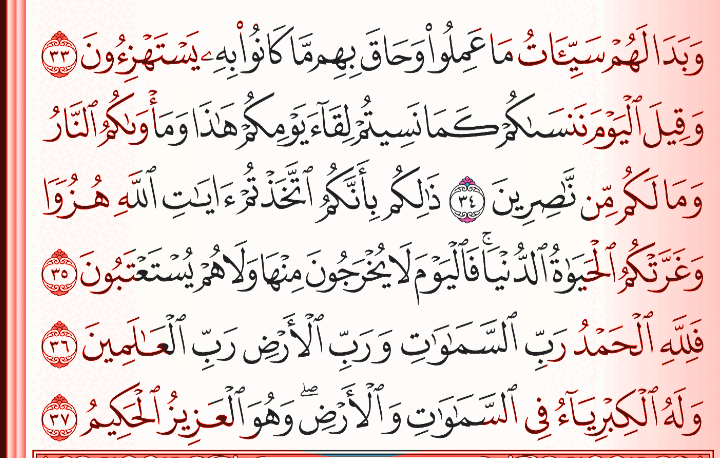 وَبَدَا لَهُمْ سَيِّـَٔاتُ مَا عَمِلُوا۟ وَحَاقَ بِهِم مَّا كَانُوا۟ بِهِۦ يَسْتَهْزِءُونَ ٣٣
وَقِيلَ ٱلْيَوْمَ نَنسَىٰكُمْ كَمَا نَسِيتُمْ لِقَآءَ يَوْمِكُمْ هَـٰذَا وَمَأْوَىٰكُمُ ٱلنَّارُ
وَمَا لَكُم مِّن نَّـٰصِرِينَ ٣٤ ذَٰلِكُم بِأَنَّكُمُ ٱتَّخَذْتُمْ ءَايَـٰتِ ٱللَّهِ هُزُوًا
وَغَرَّتْكُمُ ٱلْحَيَوٰةُ ٱلدُّنْيَا ۚ فَٱلْيَوْمَ لَا يُخْرَجُونَ مِنْهَا وَلَا هُمْ يُسْتَعْتَبُونَ ٣٥
فَلِلَّهِ ٱلْحَمْدُ رَبِّ ٱلسَّمَـٰوَٰتِ وَرَبِّ ٱلْأَرْضِ رَبِّ ٱلْعَـٰلَمِينَ ٣٦
وَلَهُ ٱلْكِبْرِيَآءُ فِى ٱلسَّمَـٰوَٰتِ وَٱلْأَرْضِ ۖ وَهُوَ ٱلْعَزِيزُ ٱلْحَكِيمُ ٣٧